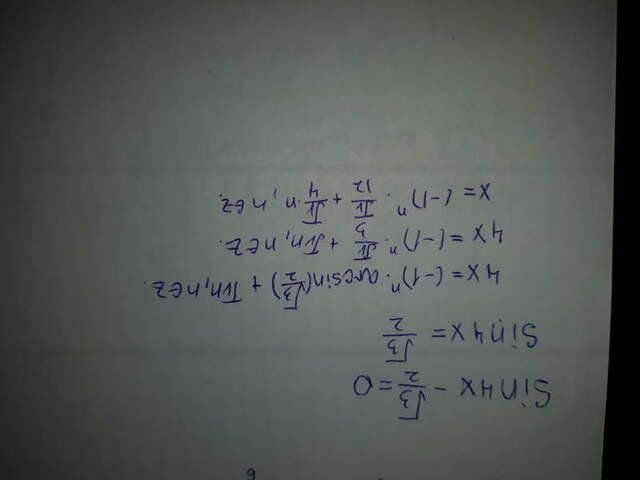 Sin4x - √3/2 = 0
Sin4x = √3/2
4x = (-1)ⁿ · arcsin(√3/2) + πn, n∈Z.
4x = (-1)ⁿ · π/3 + πn, n∈Z.
x = (-1)ⁿ · π/12 + π/4 · n, n∈Z.